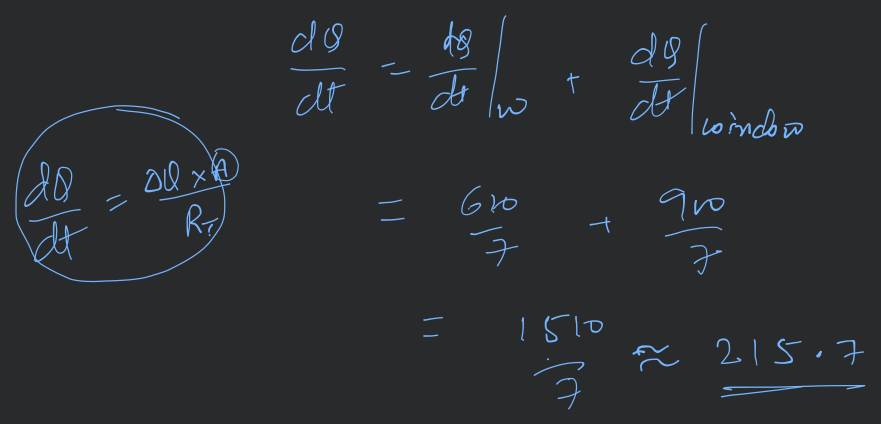 dQ/dt = dQ/dt |w + dQ/dt |window
dQ/dt = ΔQ × A / R_T
= 610/7 + 900/7
= 1510/7 ≈ 215.7